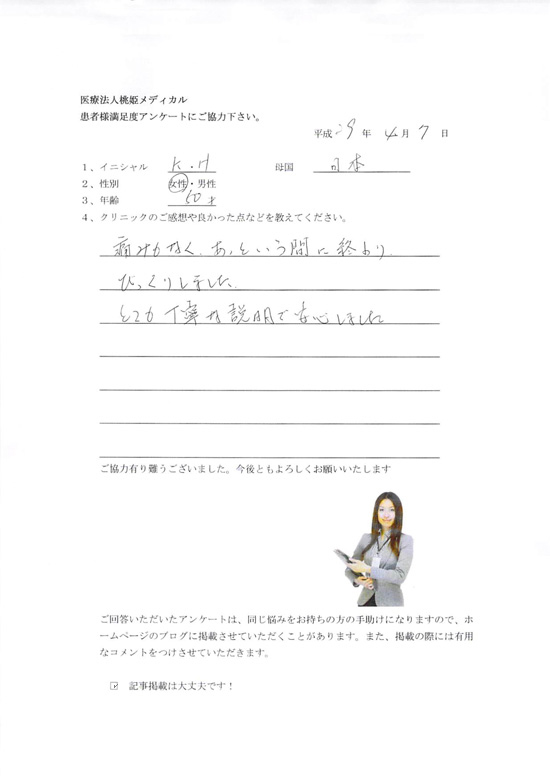 医療法人桃姫メディカル
患者様満足度アンケートにご協力下さい。
平成 29 年 4 月 7 日
1、イニシャル K.H 母国 日本
2、性別 女性・男性
3、年齢 50才
4、クリニックのご感想や良かった点などを教えてください。
痛みもなく、あっという間に終わり、
びっくりしました。
とても丁寧な説明で安心しました
ご協力有り難うございました。今後ともよろしくお願いいたします
ご回答いただいたアンケートは、同じ悩みをお持ちの方の手助けになりますので、ホ
ームページのブログに掲載させていただくことがあります。また、掲載の際には有用
なコメントをつけさせていただきます。
☑ 記事掲載は大丈夫です！